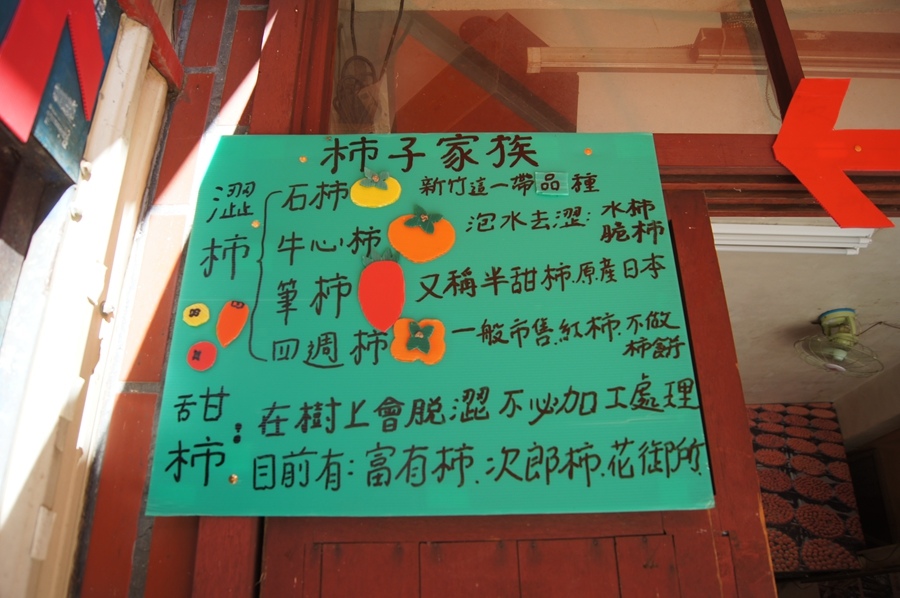 柿子家族
澀柿
石柿 新竹這一帶品種
牛心柿 泡水去澀:水柿
脆柿
筆柿 又稱半甜柿.原產日本
四週柿 一般市售紅柿.不做
柿餅
甜柿:在樹上會脫澀 不必加工處理
目前有:富有柿.次郎柿.花御所